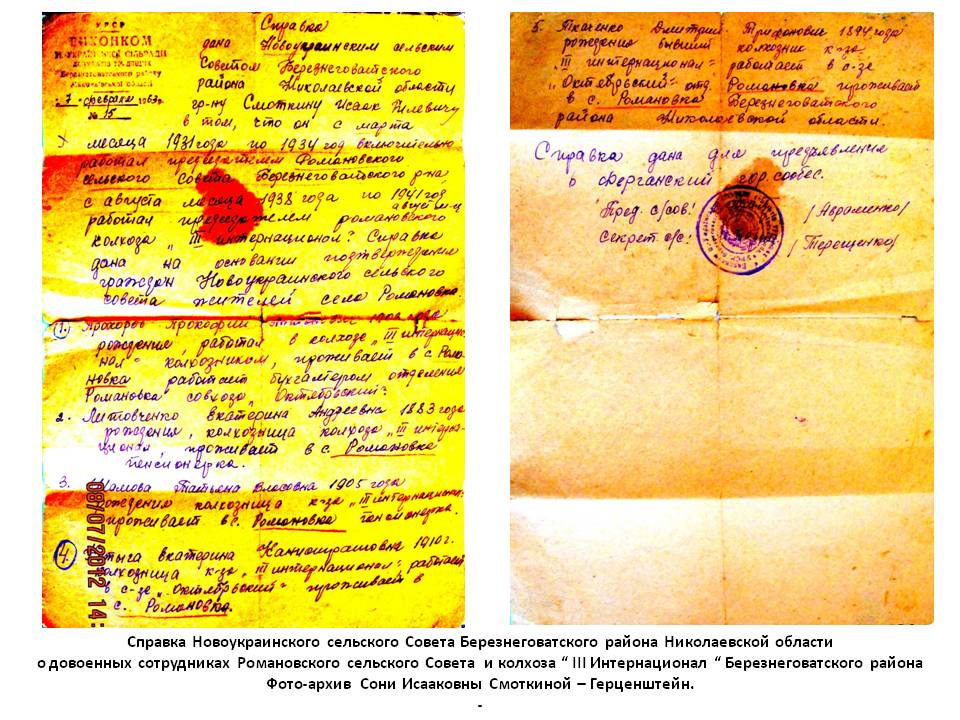 УРСР
ВИКОНКОМ
Березнеговатського району
Миколаївської області
"7" февраля 1963 г.
№ 15
Справка
дана Новоукраинским сельским
Советом Березнеговатского
района Николаевской области
гр-ну Смоткину Исаак
в том, что он с марта
месяца 1931 года по 1934 год включительно
работал председателем Романовского
сельского Совета Березнеговатского р-на
с августа месяца 1938 года по 1941 год
работал председателем романовского
колхоза „III интернационал". Справка
дана на основании подтверждения
граждан Новоукраинского сельского
совета жителей села Романовка.
1. Прохоров Прокофий года
рождения, работал в колхозе „III интернацио-
нал" колхозником, проживает в с. Рома-
новка работает бухгалтером отделения
Романовка совхоза „Октябрьский".
2. Литовченко Екатерина Андреевна 1883 года
рождения, колхозница колхоза „III интерна-
ционал, проживает в с. Романовка
пенсионерка.
3. Татьяна Власовна 1905 года
рождения колхозница к-за „III интернационал"
проживает в с. Романовка пенсионерка.
4. Екатерина 1910 г.
колхозница к-за „III интернационал", работает
в с-зе „Октябрьский" проживает в
с. Романовка.
08/07/2012 14:
5. Ткаченко Дмитрий Трифонович 1894 года
рождения бывший колхозник к-за
„III интернационал" работает в с-зе
„Октябрьский" отд. Романовка проживает
в с. Романовка Березнеговатского
района Николаевской области.
Справка дана для предъявления
в Ферганский гор. собес.
Пред. с/сов. /Авраменко/
Секрет. с/с. /Терещенко/
Справка Новоукраинского сельского Совета Березнеговатского района Николаевской области
о довоенных сотрудниках Романовского сельского Совета и колхоза “ III Интернационал “ Березнеговатского района
Фото-архив Сони Исааковны Смоткиной – Герценштейн.
-